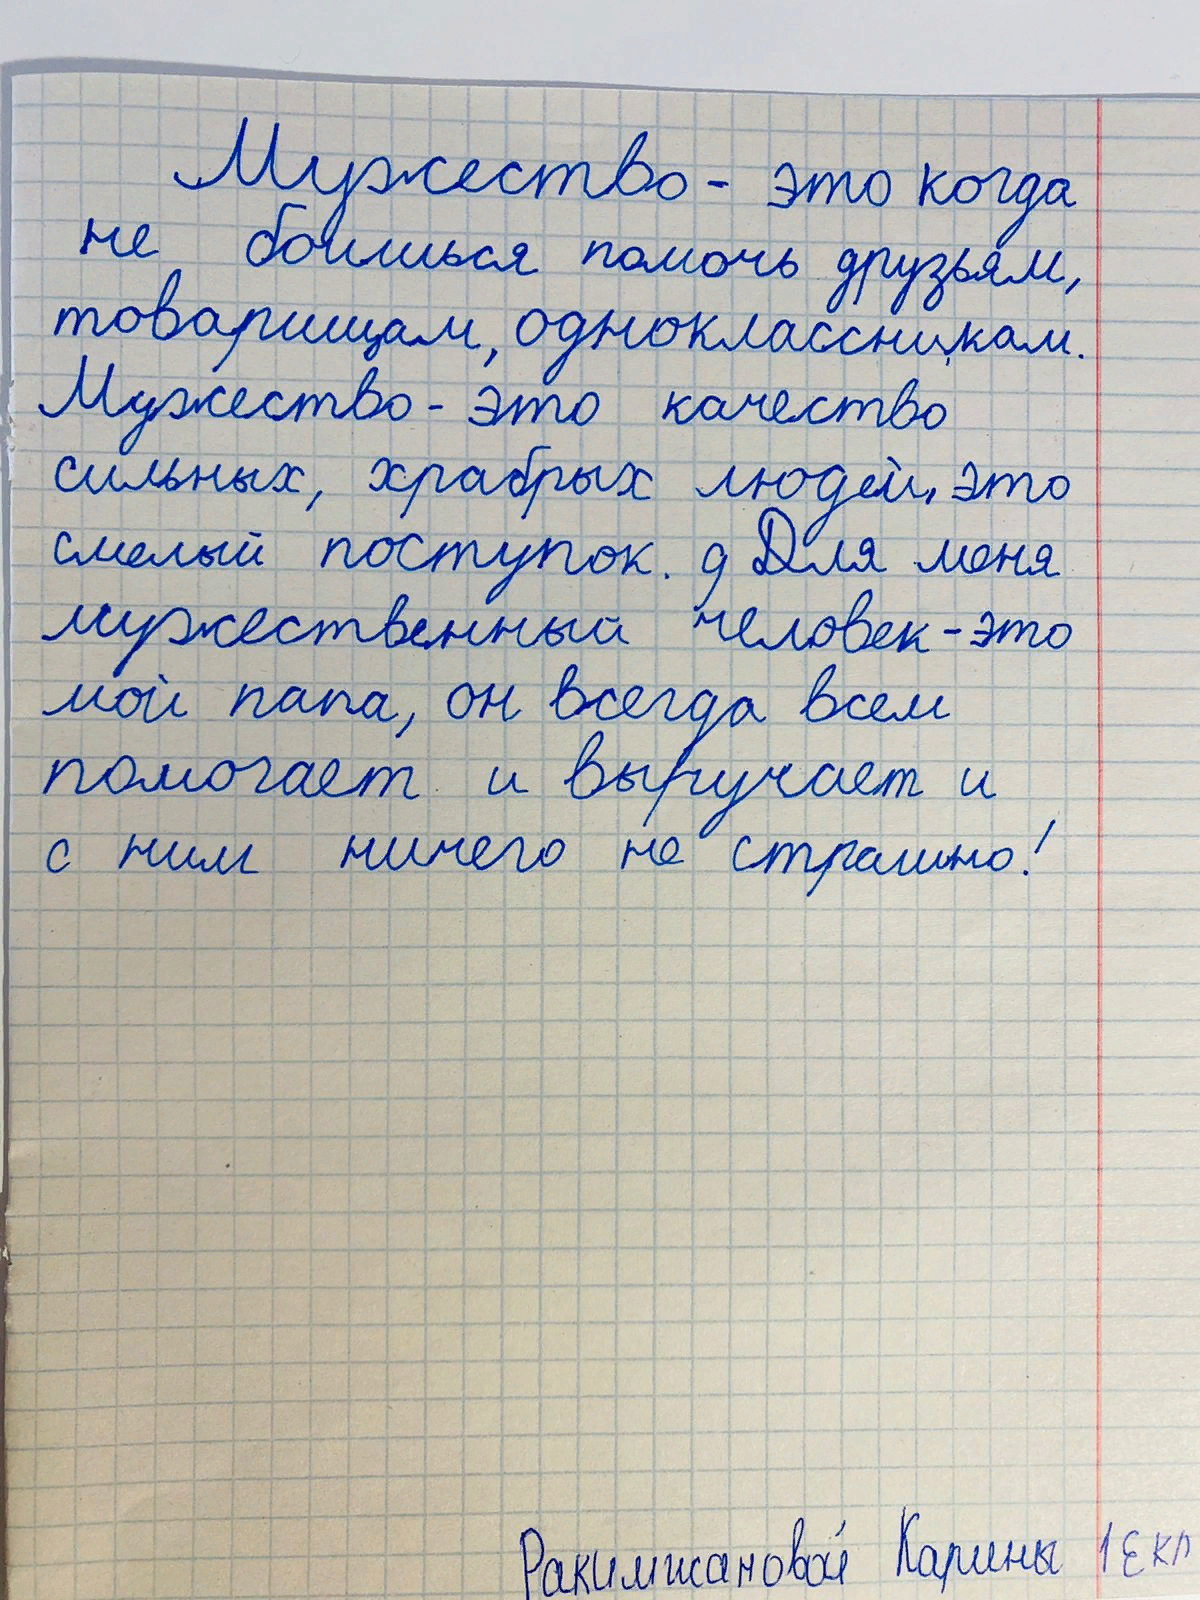 Мужество - это когда
не боишься помочь друзьям,
товарищам, одноклассникам.
Мужество - это качество
сильных, храбрых людей, это
смелый поступок. д Для меня
мужественный человек - это
мой папа, он всегда всем
помогает и выручает и
с ним ничего не страшно!
Ракимжановой Карины 1 Е кл